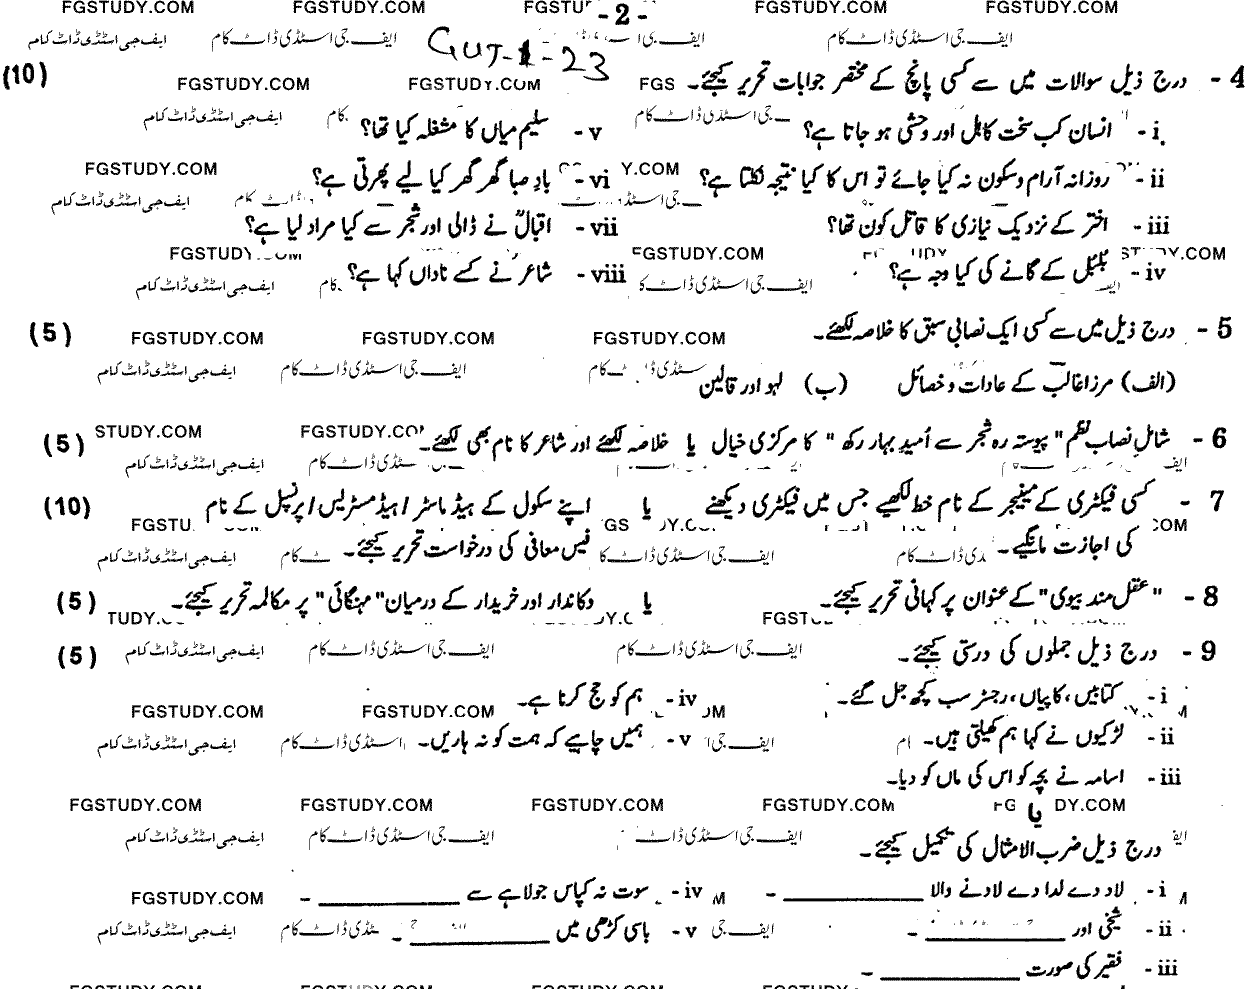 - 2 -
GUJ-1-23
4 - درج ذیل سوالات میں سے کسی پانچ کے مختصر جوابات تحریر کیجئے۔ (10)
i - انسان کب سخت کاہل اور وحشی ہو جاتا ہے؟ v - سلیم میاں کا مشغلہ کیا تھا؟
ii - روزانہ آرام و سکون نہ کیا جائے تو اس کا کیا نتیجہ نکلتا ہے؟ vi - بادِ صبا گھر گھر کیا لیے پھرتی ہے؟
iii - اختر کے نزدیک نیازی کا قاتل کون تھا؟ vii - اقبالؒ نے ڈالی اور شجر سے کیا مراد لیا ہے؟
iv - بلبل کے گانے کی کیا وجہ ہے؟ viii - شاعر نے کسے ناداں کہا ہے؟
5 - درج ذیل میں سے کسی ایک نصابی سبق کا خلاصہ لکھئے۔ (5)
(الف) مرزا غالب کے عادات و خصائل (ب) لہو اور قالین
6 - شاملِ نصاب نظم " پیوستہ رہ شجر سے اُمیدِ بہار رکھ " کا مرکزی خیال یا خلاصہ لکھئے اور شاعر کا نام بھی لکھئے۔ (5)
7 - کسی فیکٹری کے مینیجر کے نام خط لکھیے جس میں فیکٹری دیکھنے یا اپنے سکول کے ہیڈ ماسٹر / ہیڈ مسٹریس / پرنسپل کے نام (10)
کی اجازت مانگیے۔ فیس معافی کی درخواست تحریر کیجئے۔
8 - "عقل مند بیوی" کے عنوان پر کہانی تحریر کیجئے۔ یا دکاندار اور خریدار کے درمیان "مہنگائی" پر مکالمہ تحریر کیجئے۔ (5)
9 - درج ذیل جملوں کی درستی کیجئے۔ (5)
i - کتابیں، کاپیاں، رجسٹر سب کچھ جل گئے۔ iv - ہم کو حج کرنا ہے۔
ii - لڑکیوں نے کہا ہم کھیلتی ہیں۔ v - ہمیں چاہیے کہ ہمت کو نہ ہاریں۔
iii - اسامہ نے بچہ کو اس کی ماں کو دیا۔
یا
درج ذیل ضرب الامثال کی تکمیل کیجئے۔
i - لاد دے لدا دے لادنے والا ________ - iv - سوت نہ کپاس جولاہے سے ________ -
ii - شیخی اور ________ - v - باسی کڑھی میں ________ -
iii - فقیر کی صورت ________ -
FGSTUDY.COM
ایف جی اسٹڈی ڈاٹ کام